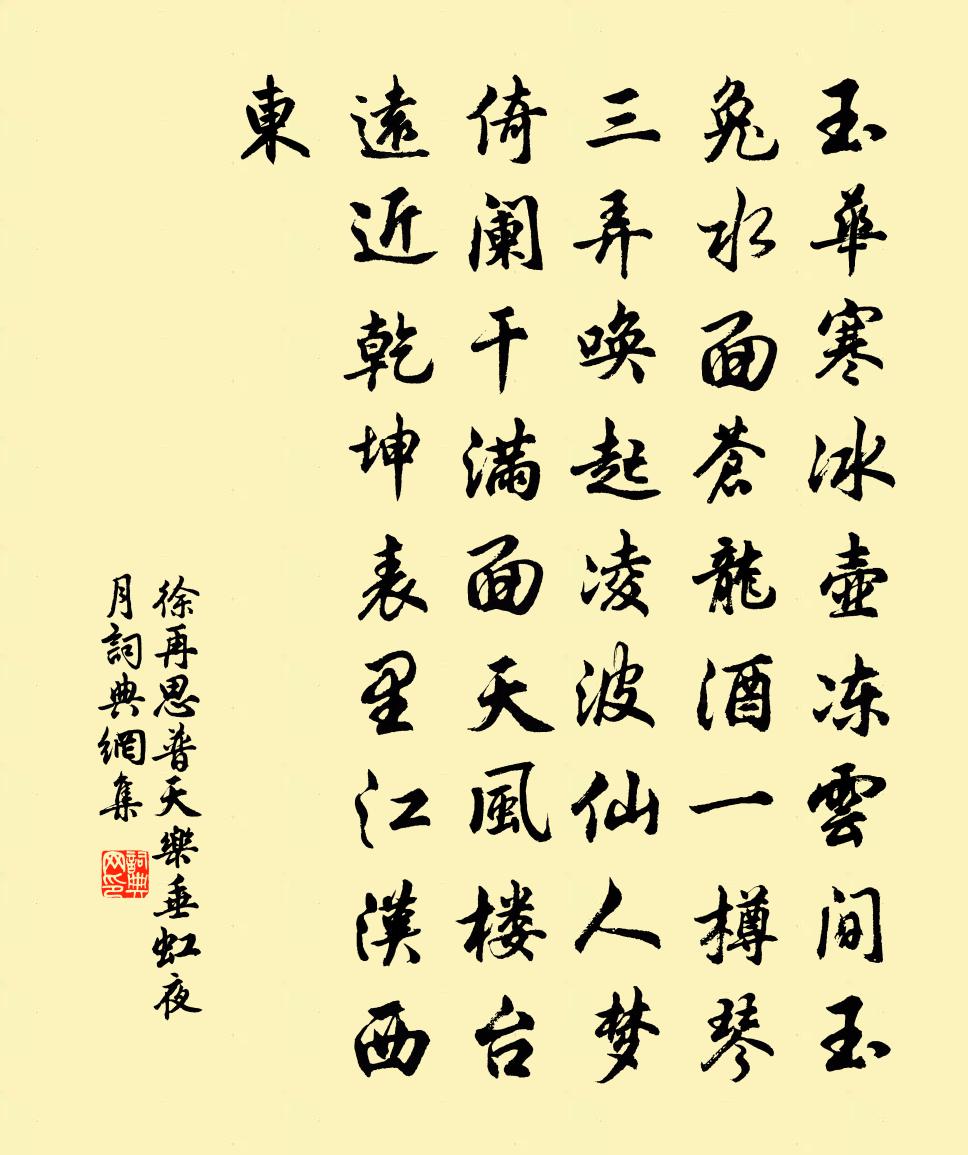 玉華寒冰壺冻雲间玉
兔水面蒼龍酒一樽琴
三弄唤起凌波仙人梦
倚阑干满面天風楼台
遠近乾坤表里江漢西
東
徐再思普天樂垂虹夜
月詞典網集
詞典网印